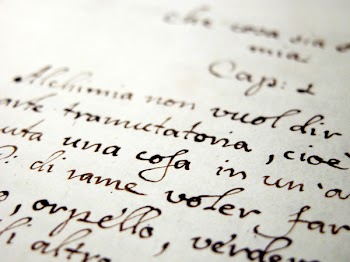 che cosa sia
mia
Cap: 1
Alchimia non vuol dir
arte tramutatoria, cioè
uta una cosa in un'a
di rame voler far
, orpello, verder
li altro